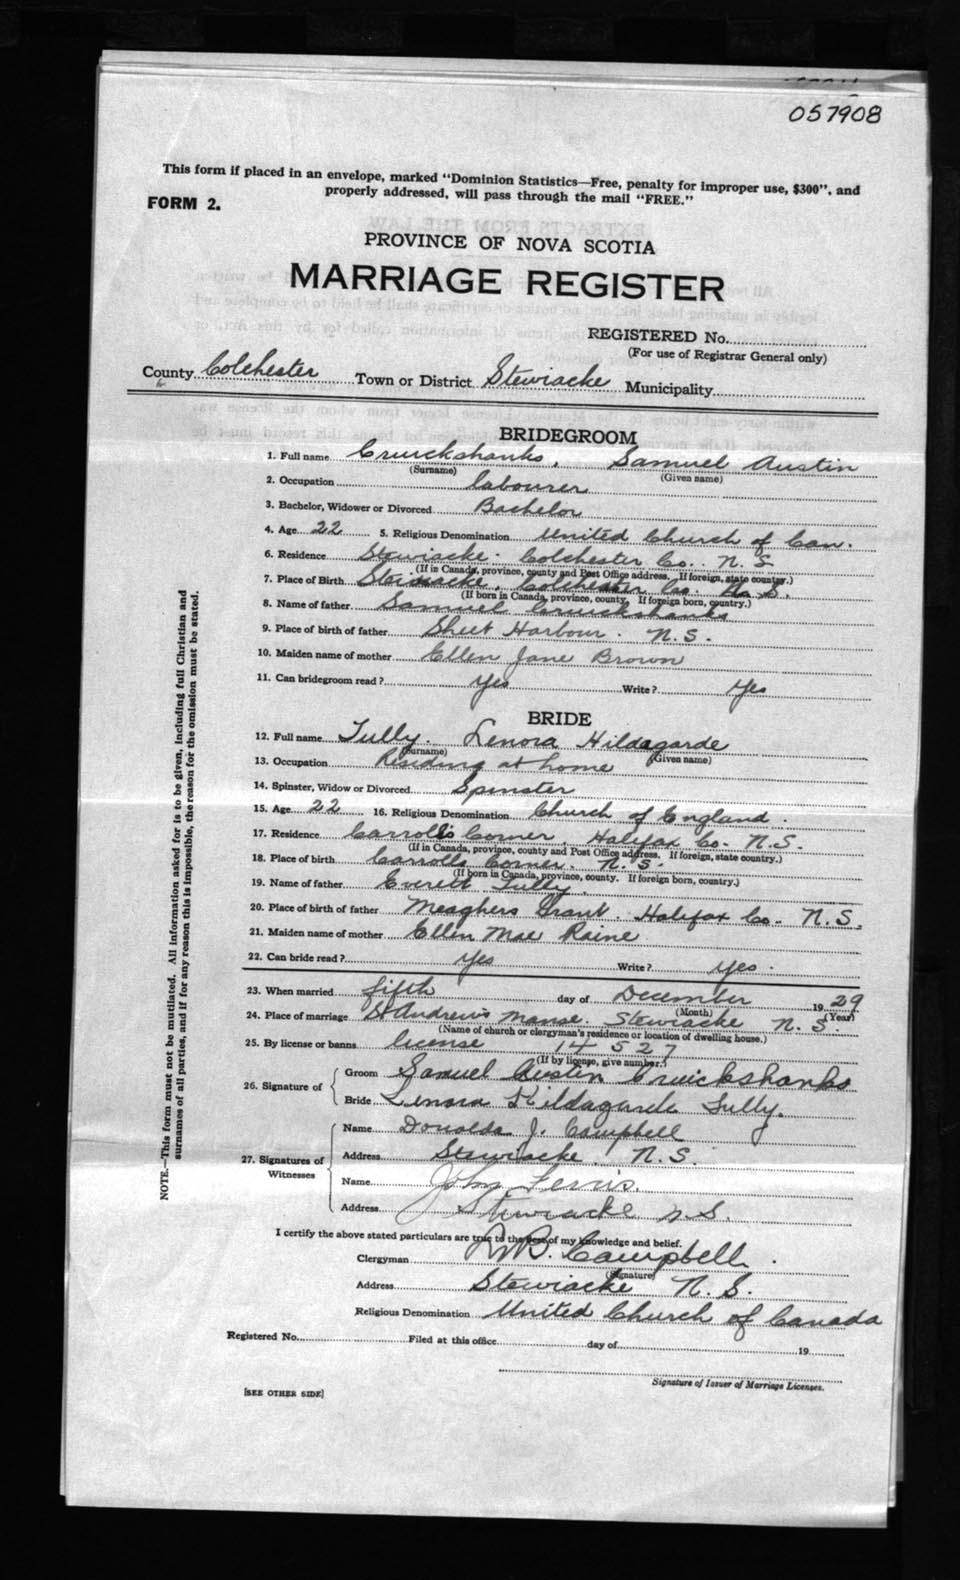 057908
This form if placed in an envelope, marked "Dominion Statistics—Free, penalty for improper use, $300", and
properly addressed, will pass through the mail "FREE."
FORM 2.
PROVINCE OF NOVA SCOTIA
MARRIAGE REGISTER
REGISTERED No.
(For use of Registrar General only)
County Colchester Town or District Stewiacke Municipality
BRIDEGROOM
1. Full name Cruickshanks, Samuel Austin
(Surname) (Given name)
2. Occupation labourer
3. Bachelor, Widower or Divorced Bachelor
4. Age 22 5. Religious Denomination United Church of Can.
6. Residence Stewiacke. Colchester Co. N.S
(If in Canada, province, county and Post Office address. If foreign, state country.)
7. Place of Birth Stewiacke, Colchester Co. N.S.
(If born in Canada, province, county. If foreign born, country.)
8. Name of father Samuel Cruickshanks
9. Place of birth of father Sheet Harbour. N.S.
10. Maiden name of mother Ellen Jane Brown
11. Can bridegroom read? Yes Write? Yes
BRIDE
12. Full name Tully. Lenora Hildagarde
(Surname) (Given name)
13. Occupation Residing at home
14. Spinster, Widow or Divorced Spinster
15. Age 22 16. Religious Denomination Church of England.
17. Residence Carroll's Corner, Halifax Co. N.S.
(If in Canada, province, county and Post Office address. If foreign, state country.)
18. Place of birth Carrolls Corner. N.S.
(If born in Canada, province, county. If foreign born, country.)
19. Name of father Everett Tully.
20. Place of birth of father Meaghers Grant. Halifax Co. N.S.
21. Maiden name of mother Ellen Mae Raine
22. Can bride read? Yes Write? Yes.
23. When married fifth day of December 1929
(Month) (Year)
24. Place of marriage St Andrew's Manse. Stewiacke N.S.
(Name of church or clergyman's residence or location of dwelling house.)
25. By license or banns license 14527
(If by license, give number.)
26. Signature of Groom Samuel Austin Cruickshanks
Bride Lenora Hildagarde Tully.
27. Signatures of Witnesses
Name Donalda J. Campbell
Address Stewiacke, N.S.
Name John Fervis.
Address Stewiacke N.S.
I certify the above stated particulars are true to the best of my knowledge and belief.
Clergyman Campbell.
(Signature)
Address Stewiacke N.S.
Religious Denomination United Church of Canada
Registered No. Filed at this office day of 19
Signature of Issuer of Marriage Licenses.
[SEE OTHER SIDE]
NOTE.—This form must not be mutilated. All information asked for is to be given, including full Christian and
surnames of all parties, and if for any reason this is impossible, the reason for the omission must be stated.